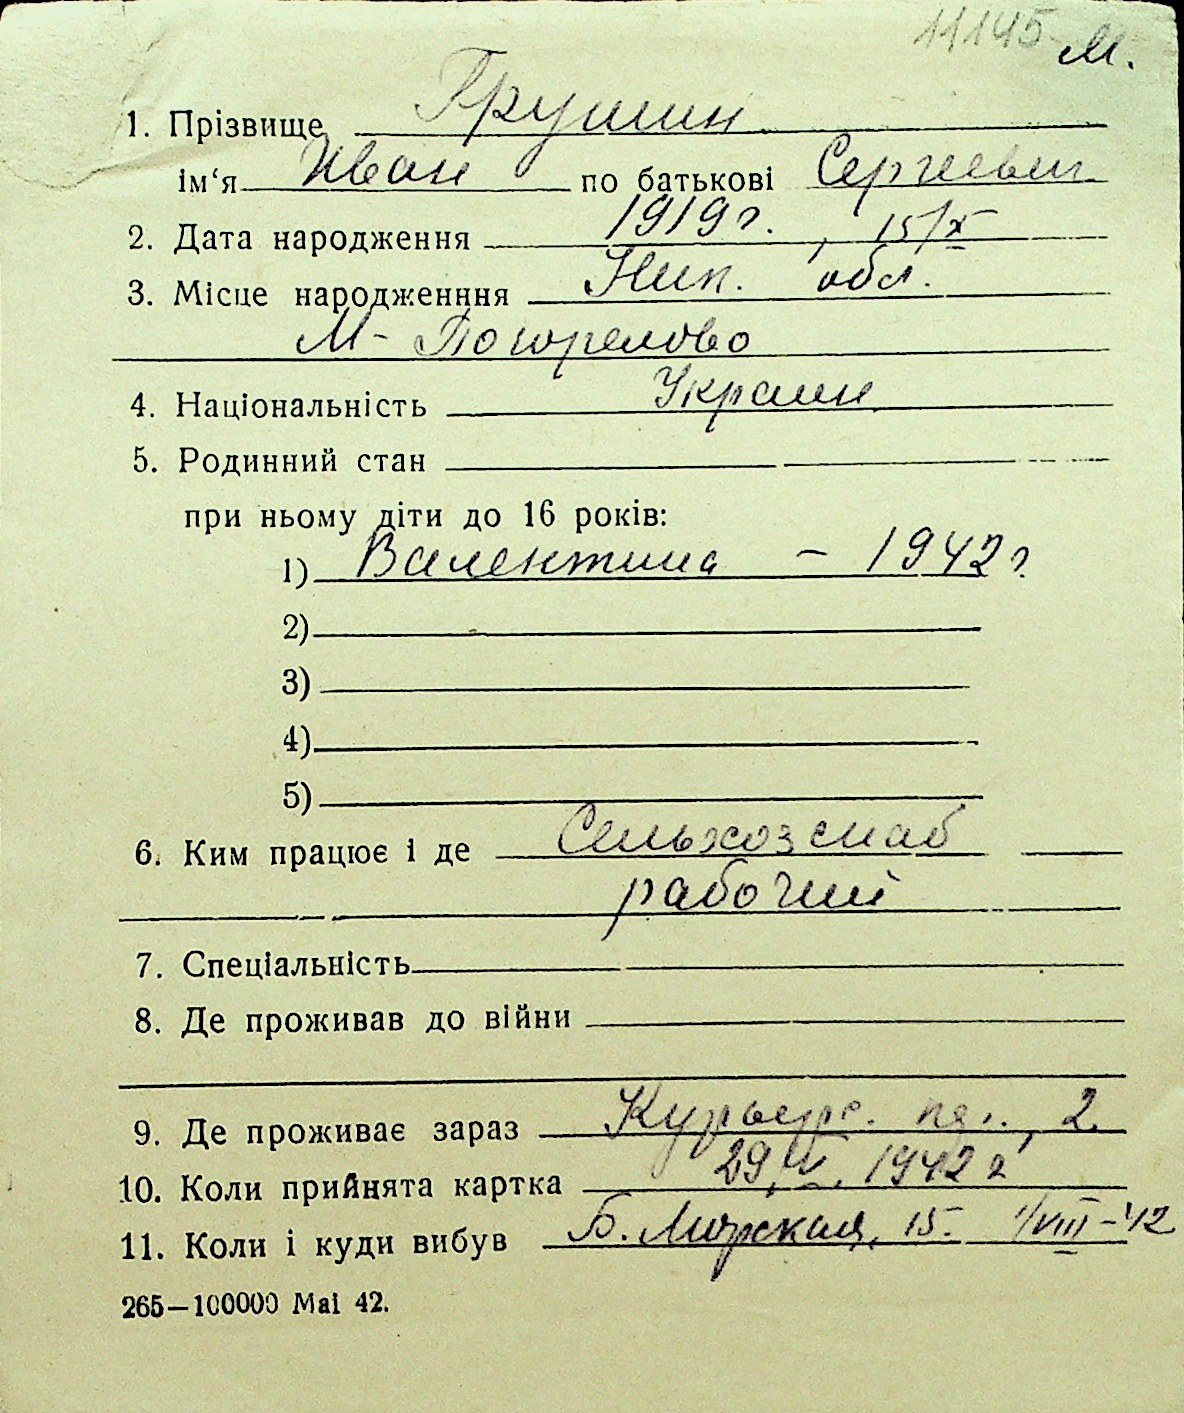 11145 М.
1. Прізвище Грушин
ім‘я Иван по батькові Сергеевич
2. Дата народження 1919 г., 15/X
3. Місце народженння Ник. обл.
М-Погорелово
4. Національність Украин
5. Родинний стан
при ньому діти до 16 років:
1) Валентина – 1942 г.
2)
3)
4)
5)
6. Ким працює і де Сельхозснаб
рабочий
7. Спеціальність
8. Де проживав до війни
9. Де проживає зараз Курьерс. 2
10. Коли прийнята картка 29, 1942 г
11. Коли і куди вибув Б. Морская, 15. 1/VIII-42
265—100000 Маі 42.